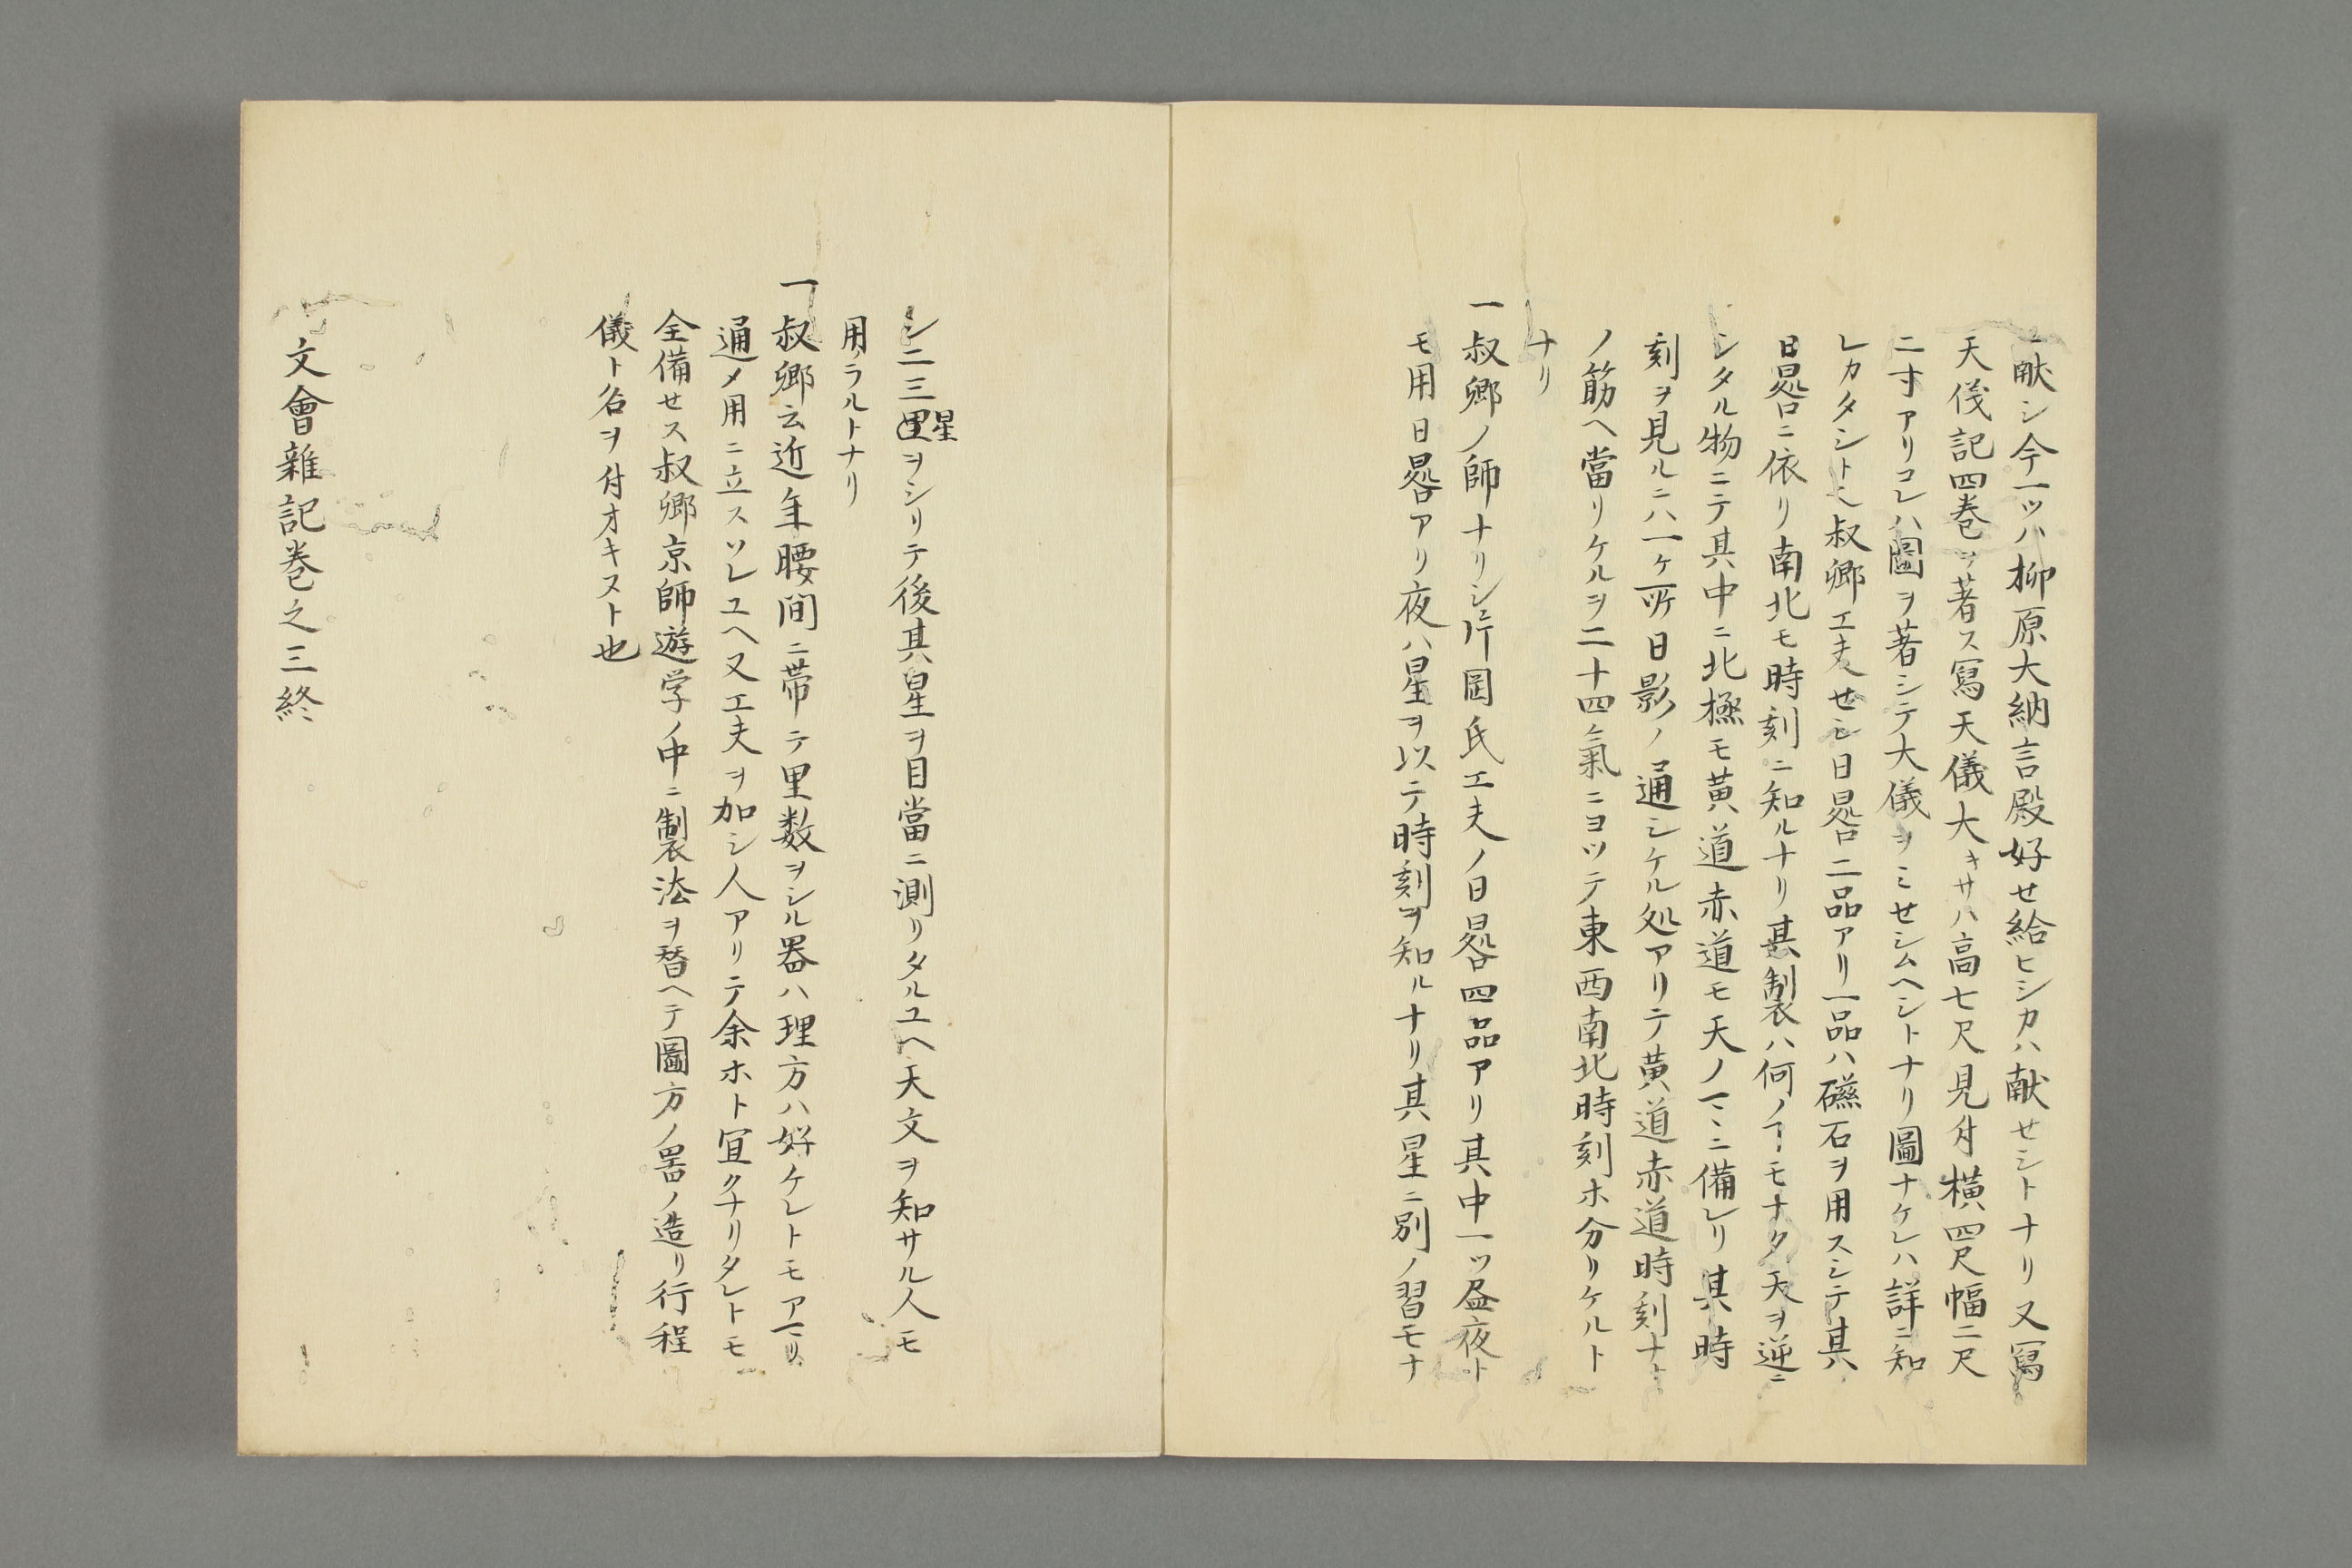 ニ献シ今一ツハ柳原大納言殿好セ給ヒシカハ献セシトナリ又寫
天儀記四巻ヲ著ス寫天儀大キサハ高七尺見付横四尺幅二尺
二寸アリコレハ圖ヲ著シテ大儀ヲミセシムヘシトナリ圖ナケレハ詳ニ知
レカタシト也叔卿工夫セシ日晷二品アリ一品ハ磁石ヲ用スシテ其
日晷ニ依リ南北モ時刻ニ知ルナリ甚製ハ何ノヿモナク天ヲ逆ニ
シタル物ニテ其中ニ北極モ黄道赤道モ天ノマヽニ備レリ其時
刻ヲ見ルニハ一ケ所日影ノ通シケル処アリテ黄道赤道時刻ナト
ノ筋ヘ當リケルヲ二十四氣ニヨツテ東西南北時刻ホ分リケルト
ナリ
一叔卿ノ師ナリシ片岡氏工夫ノ日晷四品アリ其中一ツ昼夜ト
モ用日晷アリ夜ハ星ヲ以テ時刻ヲ知ルナリ其星ニ別ノ習モナ
シ二三里星ヲシリテ後其星ヲ目當ニ測リタルユヘ天文ヲ知サル人モ
用ラルトナリ
一叔卿云近年腰間ニ帯テ里数ヲシル器ハ理方ハ好ケレトモアマリ
通メ用ニ立スソレユヘ又工夫ヲ加シ人アリテ余ホト宜クナリタレトモ
全備セス叔卿京師遊学ノ中ニ製法ヲ替ヘテ圖方ノ畧ノ造リ行程
儀ト名ヲ付オキヌト也
文會雜記巻之三終